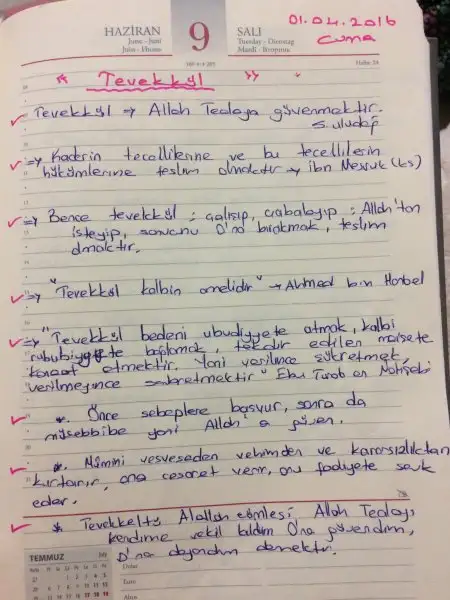 01.04.2016
Cuma
HAZİRAN
June - Juni
9
SALI
Tuesday - Dienstag
Hafta 24
* Tevekkül
Tevekkül ⇒ Allah Tealaya güvenmektir.
S. uludağ
⇒ Kaderin tecellilerine ve bu tecellilerin
hükümlerine teslim olmaktır → ibn Mesruk (ks)
⇒ Bence tevekkül ; çalışıp, çabalayıp ; Allah'tan
isteyip, sonucunu O'na bırakmak, teslim
olmaktır.
⇒ "Tevekkül kalbin amelidir" → Ahmed bin Hanbel
⇒ "Tevekkül bedeni ubudiyyete atmak, kalbi
rububiyyete bağlamak, takdir edilen maişete
kanaat etmektir. Yani verilince şükretmek,
verilmeyince sabretmektir" Ebu Turab en Nahşebi
*. Önce sebeplere başvur, sonra da
müsebbibe yani Allah'a güven.
*. Mümini vesveseden vehimden ve kararsızlıktan
kurtarır, ona cesaret verir, onu faaliyete sevk
eder.
* Tevekkeltü Alallah cümlesi Allah Tealayı
kendime vekil kıldım O'na güvendim,
O'na dayandım demektir.
TEMMUZ
July